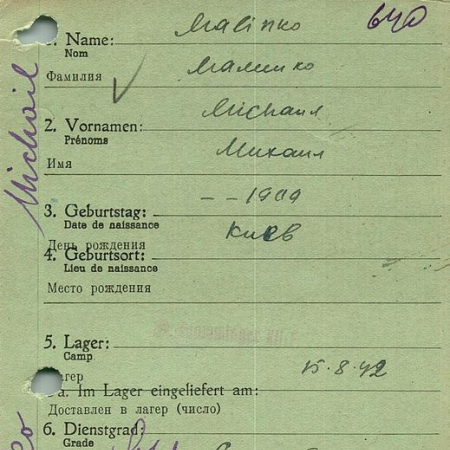 Malinko 640
1. Name:
Nom
Фамилия
Малинко
Michail
Michail
2. Vornamen:
Prénoms
Имя
Михаил
- - 1909
3. Geburtstag:
Date de naissance
День рождения
Киев
4. Geburtsort:
Lieu de naissance
Место рождения
5. Lager:
Camp
Лагер
15.8.42
5a. Im Lager eingeliefert am:
Доставлен в лагер (число)
6. Dienstgrad:
Grade